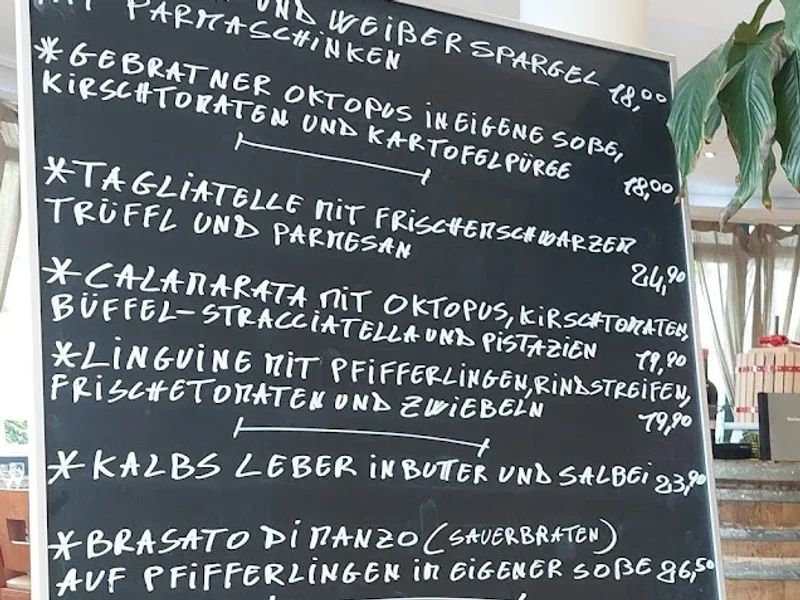 UND WEIßER SPARGEL
MIT PARMASCHINKEN 18,00
*GEBRATNER OKTOPUS IN EIGENE SOßE,
KIRSCHTOMATEN UND KARTOFELPÜREE 18,00
*TAGLIATELLE MIT FRISCHEM SCHWARZEM
TRÜFFL UND PARMESAN 24,90
*CALAMARATA MIT OKTOPUS, KIRSCHTOMATEN,
BÜFFEL-STRACCIATELLA UND PISTAZIEN 19,90
*LINGUINE MIT PFIFFERLINGEN, RINDSTREIFEN,
FRISCHETOMATEN UND ZWIEBELN 19,90
*KALBS LEBER IN BUTTER UND SALBEI 23,90
*BRASATO DI MANZO (SAUERBRATEN)
AUF PFIFFERLINGEN IN EIGENER SOßE 26,50